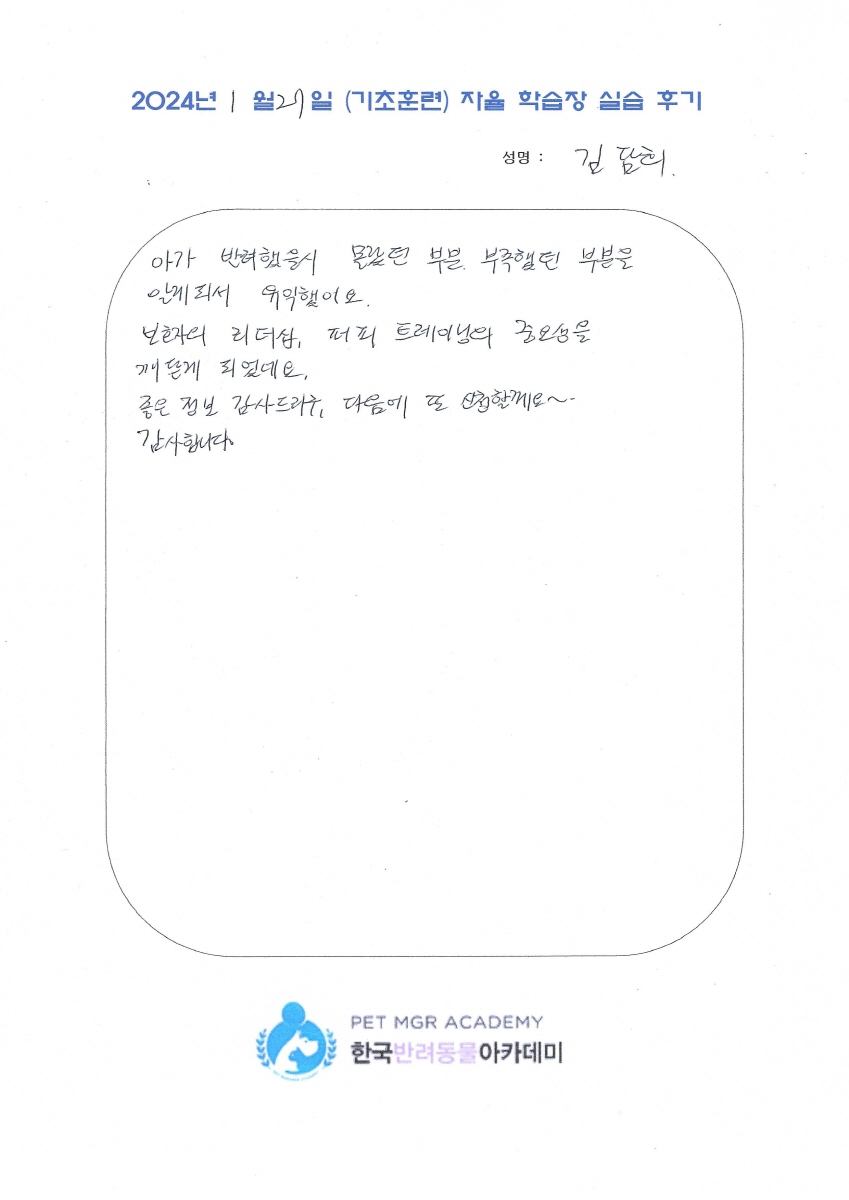 2024년 1월 27일 (기초훈련) 자율 학습장 실습 후기
성명 : 김담희.
아가 반려했을시 몰랐던 부분. 부족했던 부분을
알게되서 유익했어요.
보호자의 리더쉽, 퍼피 트레이닝의 중요성을
깨닫게 되었네요.
좋은 정보 감사드리구, 다음에 또 신청할께요~
감사합니다.
PET MGR ACADEMY
한국반려동물아카데미